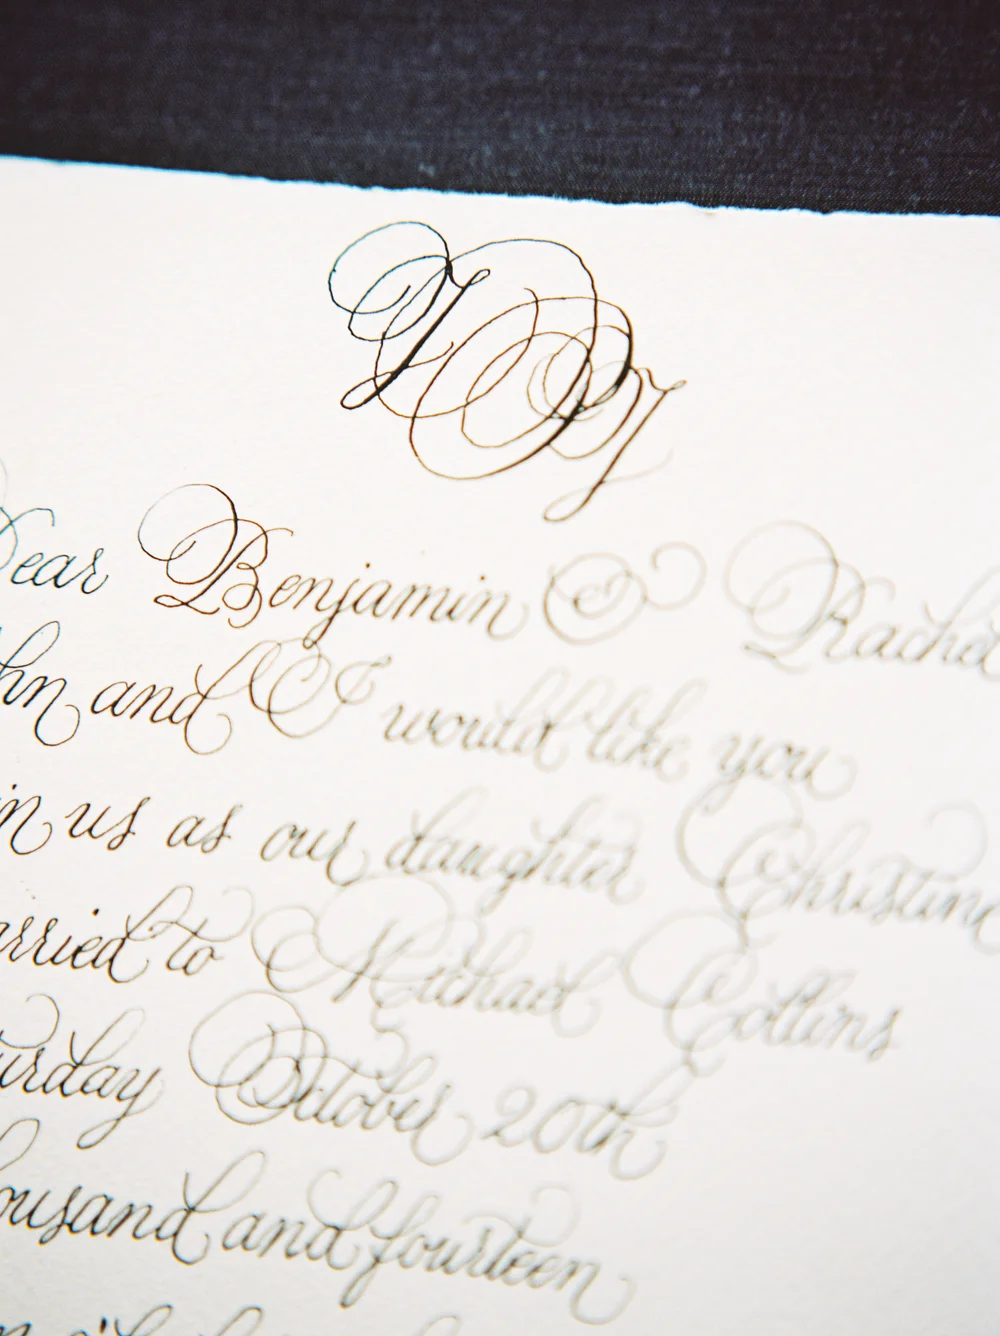 Dear Benjamin & Racha
hn and I would like you
in us as our daughter Christine
arried to Michael Collins
turday October 20th
ousand and fourteen